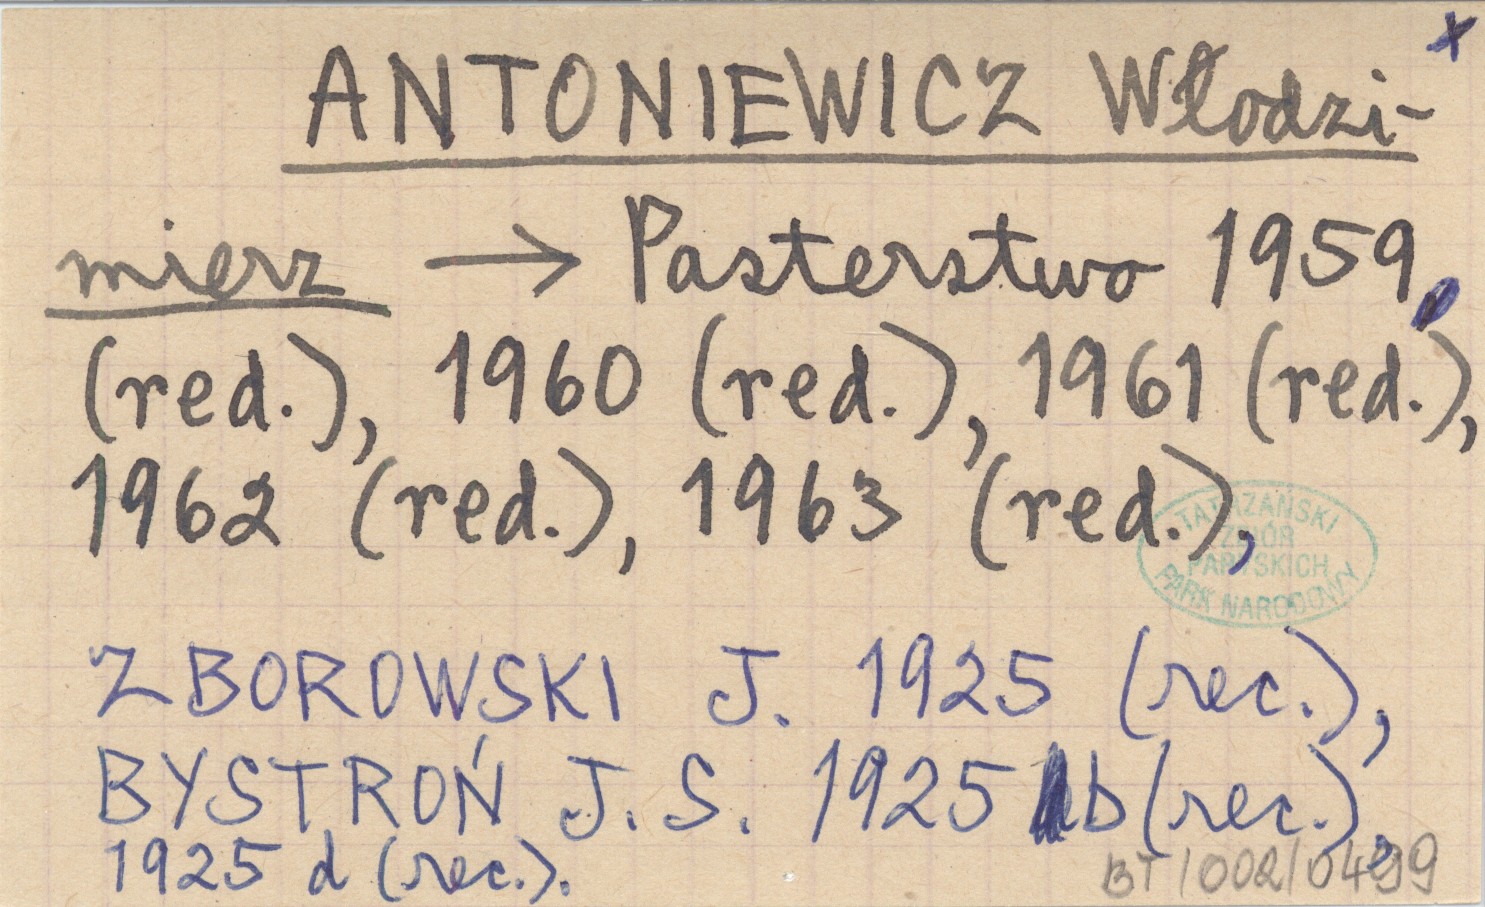 x
ANTONIEWICZ Włodzi-
mierz → Pasterstwo 1959
(red.), 1960 (red.), 1961 (red.),
1962 (red.), 1963 (red.),
TATRZAŃSKI
ZBIÓR
PARYSKICH
PARK NARODOWY
ZBOROWSKI J. 1925 (rec.),
BYSTROŃ J.S. 1925 b (rec.),
1925 d (rec.).
BT/002/0499